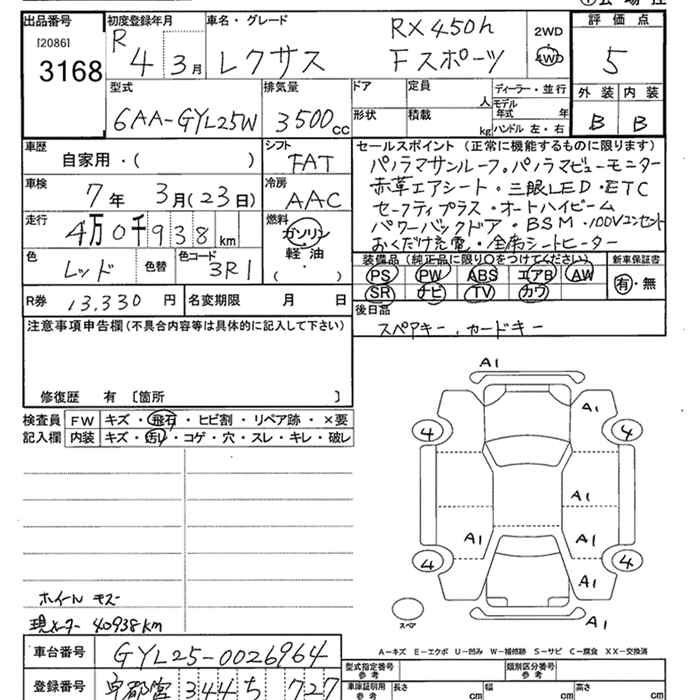 出品番号
[2086]
3168
初度登録年月
R 4 3月
車名・グレード
レクサス
RX450h
Fスポーツ
2WD
4WD
評価点
5
外装 内装
B B
型式
6AA-GYL25W
排気量
3500cc
ドア
形状
定員
人
積載
kg
ディーラー・並行
モデル年式 年
ハンドル 左・右
車歴
自家用・( )
シフト
FAT
車検
7年 3月(23日)
冷房
AAC
走行
4万0千938km
燃料
ガソリン
軽油
( ・ )
色
レッド
色替
色コード
3R1
R券
13,330円
名変期限 月 日
セールスポイント(正常に機能するものに限ります)
パノラマサンルーフ。パノラマビューモニター
赤革エアシート・三眼LED・ETC
セーフティプラス・オートハイビーム
パワーバックドア・BSM・100Vコンセント
おくだけ充電・全席シートヒーター
装備品(純正品に限り○をつけてください)
PS PW ABS エアB AW
SR ナビ TV カワ
新車保証書
有・無
後日品
スペアキー、カードキー
注意事項申告欄(不具合内容等は具体的に記入して下さい)
修復歴 有 〔箇所 〕
検査員記入欄
FW キズ・飛石・ヒビ割・リペア跡・×要
内装 キズ・汚れ・コゲ・穴・スレ・キレ・破レ
A1
A1
4
4
A1
A1
A1
4
4
A1
A1
スペア
ホイール キズ
現メーター 40938km
A−キズ E−エクボ U−凹み W−補修跡 S−サビ C−腐食 XX−交換済
車台番号
GYL25-0026964
登録番号
宇都宮 344 ち 727
型式指定番号
参考
類別区分番号
参考
車庫証明用
参考
長さ cm
幅 cm
高さ cm